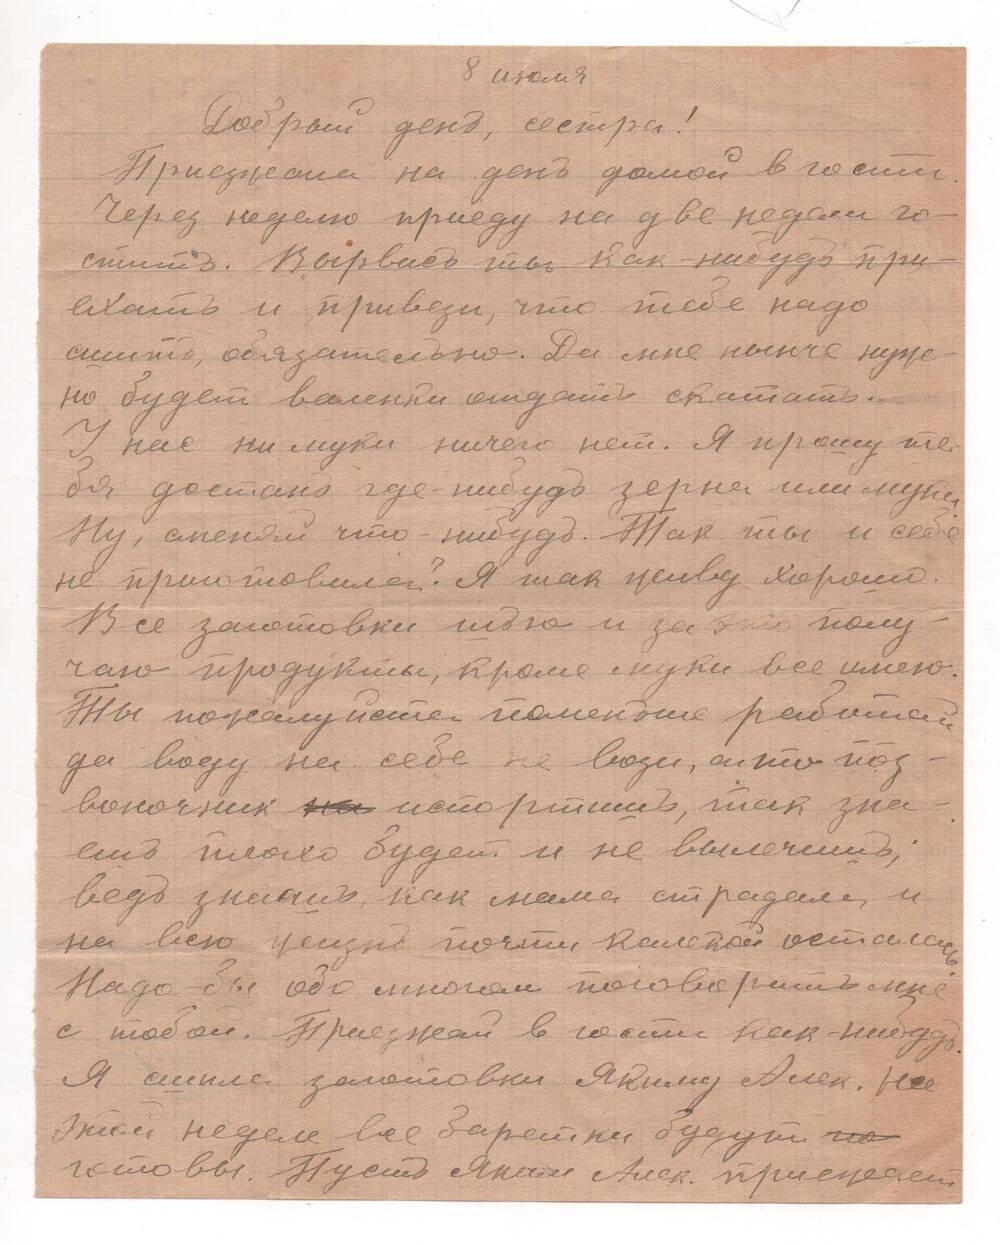 8 июля
Добрый день, сестра!
Приезжала на день домой в гости.
Через неделю приеду на две недели го-
стить. Вырвись ты как-нибудь при-
ехать и привези, что тебе надо
сшить, обязательно. Да мне нынче нуж-
но будет валенки отдать скатать.
У нас ни муки ничего нет. Я прошу те-
бя достань где-нибудь зерна или муки
Ну, сменяй что-нибудь. Так ты и себе
не приготовила? Я так живу хорошо.
Все заготовки шью и за это полу-
чаю продукты, кроме муки все имею.
Ты пожалуйста поменьше работай
да воду на себе не вози, а то поз-
воночник на испортишь, так зна-
ешь плохо будет и не вылечишь;
ведь знаешь, как мама страдала, и
на всю жизнь почти калекой осталась.
Надо-бы обо многом поговорить мне
с тобой. Приезжай в гости как-нибудь.
Я сшила заготовки Якиму Алек. На
этой неделе все варежки будут по
готовы. Пусть Яким Алек. приезжает